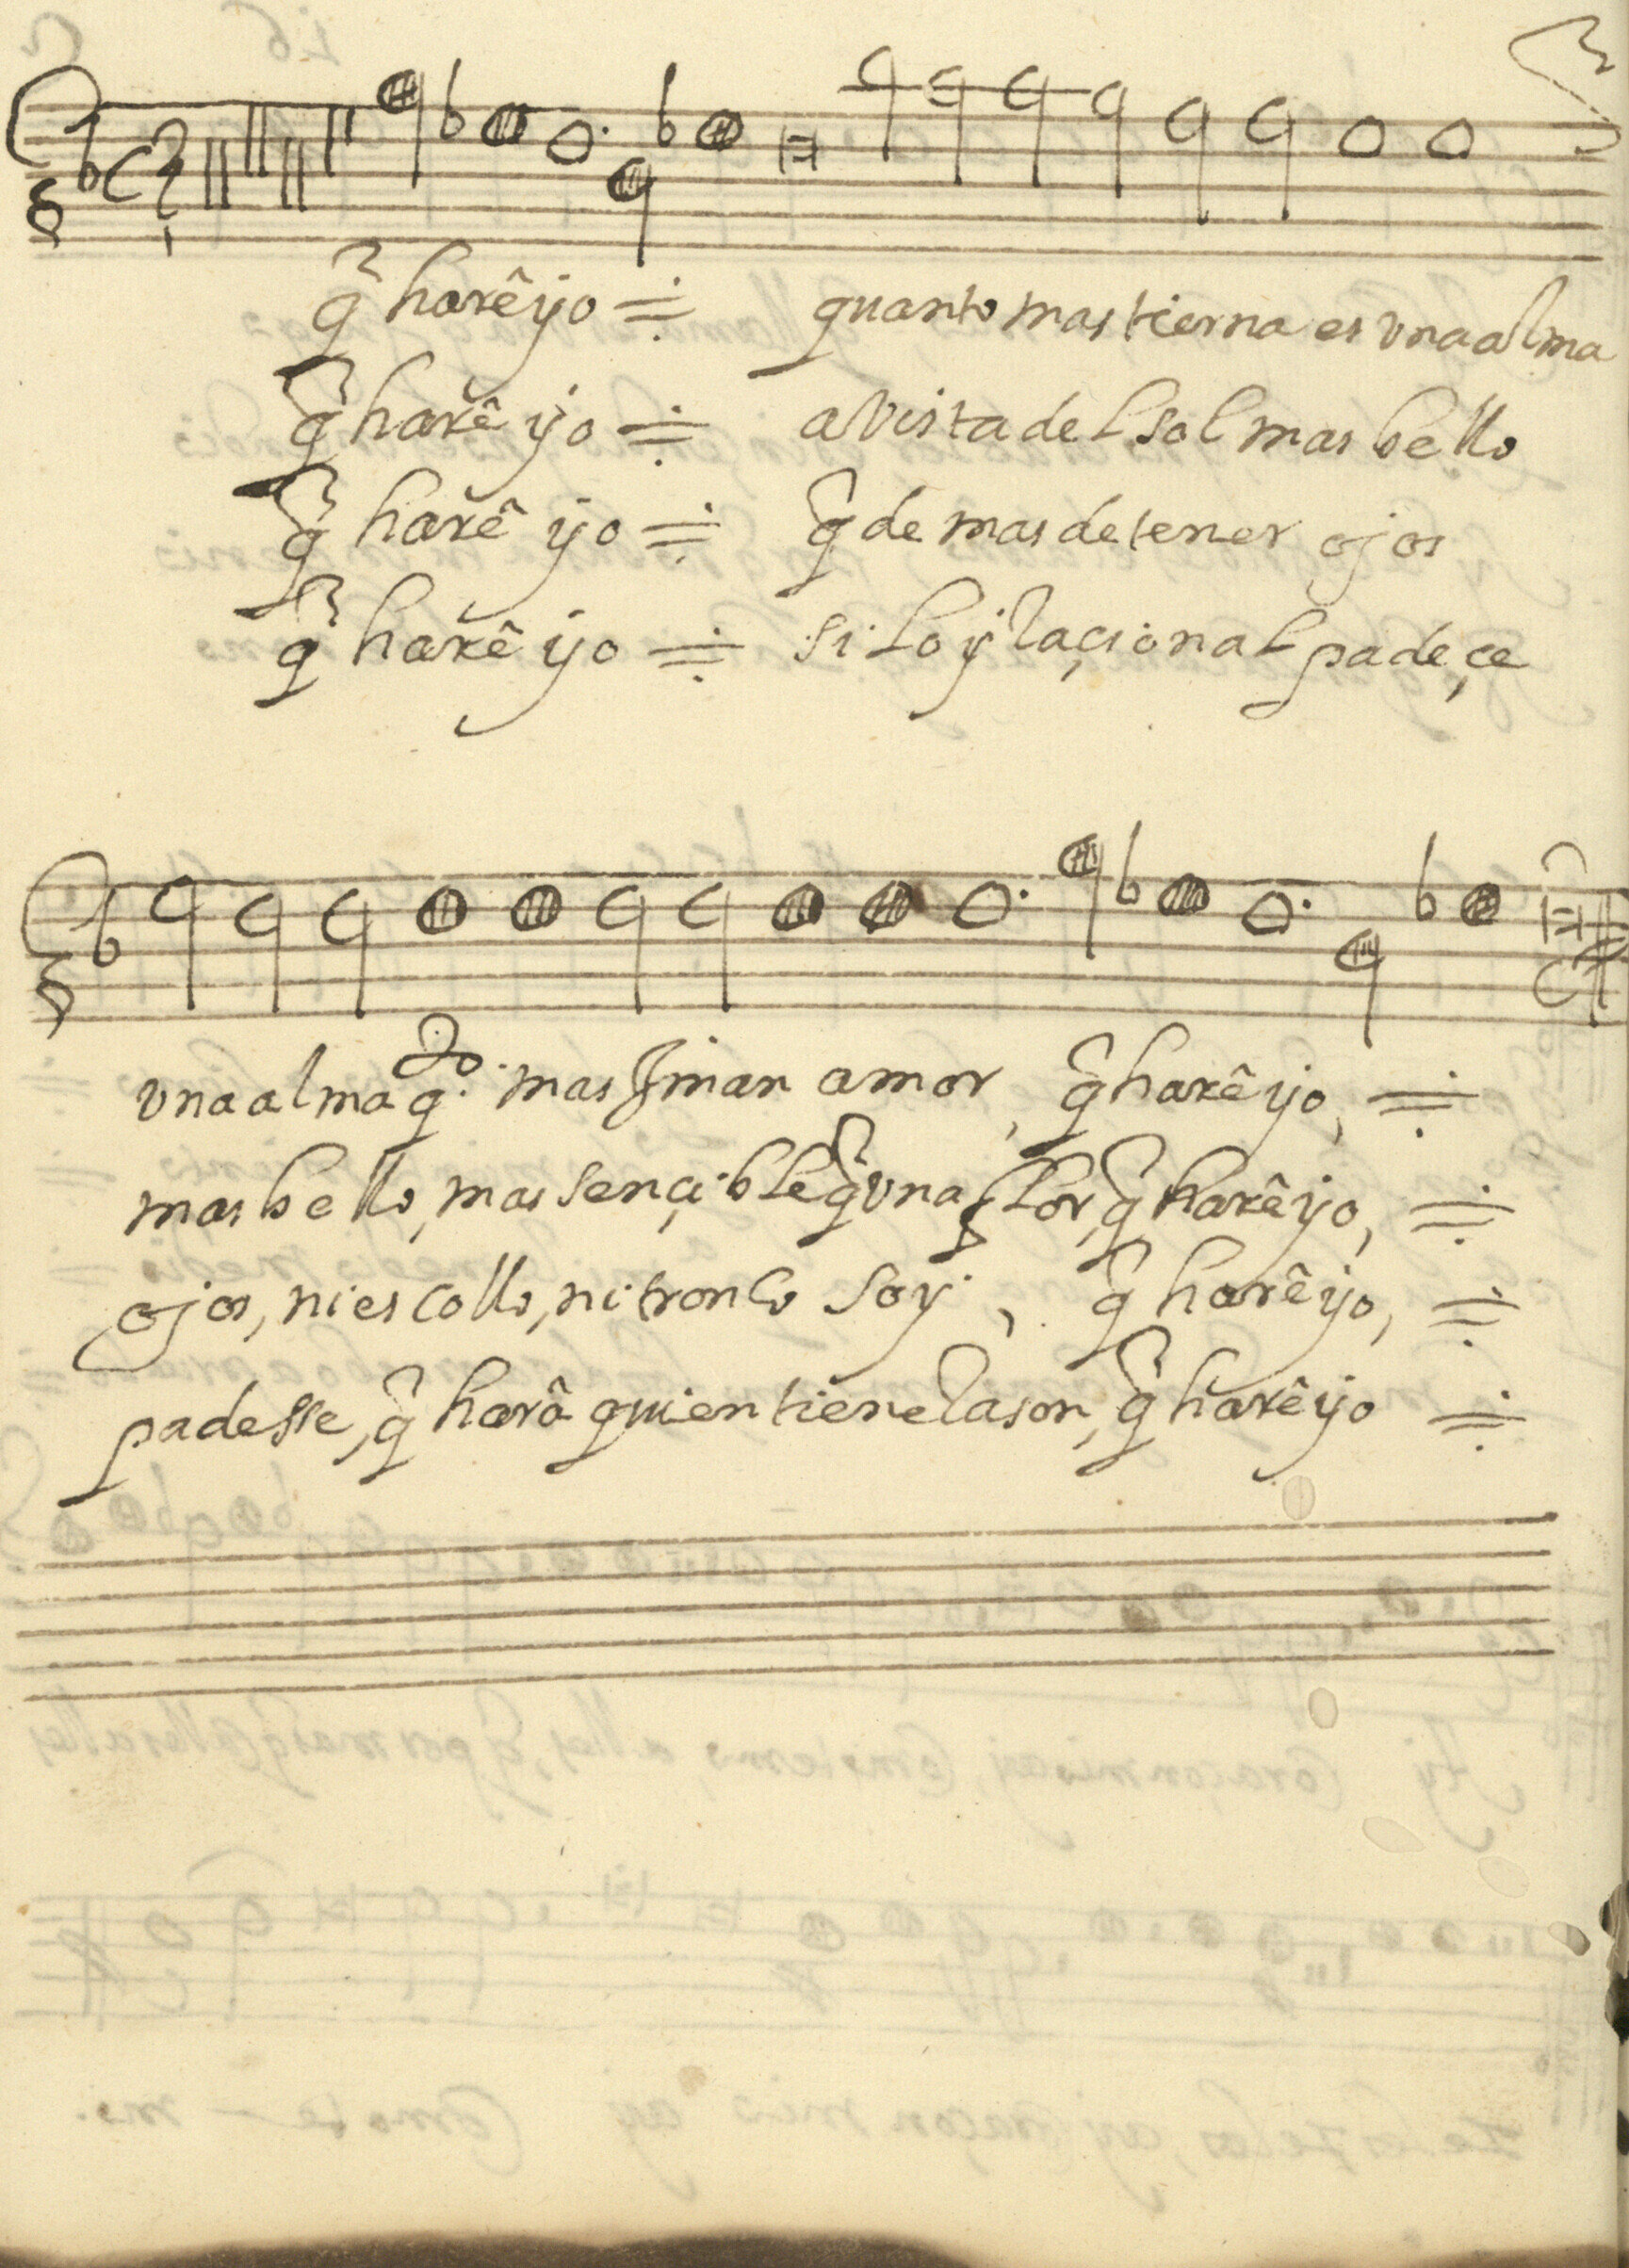 q̃ harê yo ÷ quanto mas tierna es vna alma
q̃ harê yo ÷ a vista del sol mas bello
q̃ harê yo ÷ q̃ de mas de tener ojos
q̃ harê yo ÷ si lo yrlaçional padeçe
vna alma q.do mas finan amor, q̃ harê yo, ÷
mas bello, mas sençible q̃ vna flor, q̃ harê yo, ÷
ojos, ni escollo, ni tronco soy, q̃ harê yo, ÷
padesse, q̃ harâ quien tiene rason, q̃ harê yo ÷